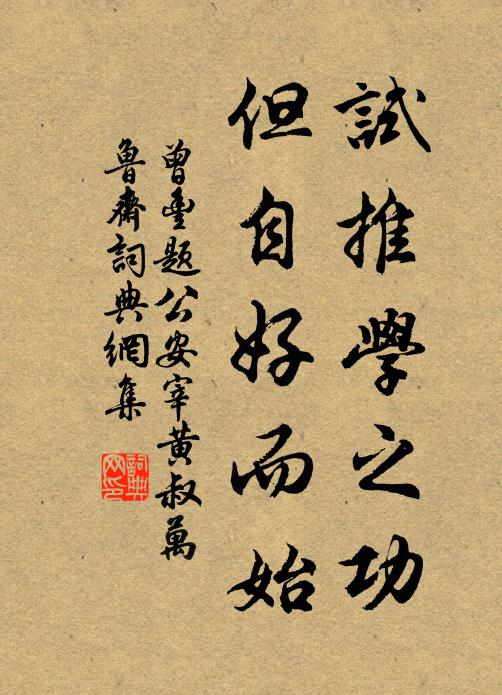 試推學之功
但自好而始
曾豊題公安宰黃叔萬
魯齋詞典網集
詞典网印